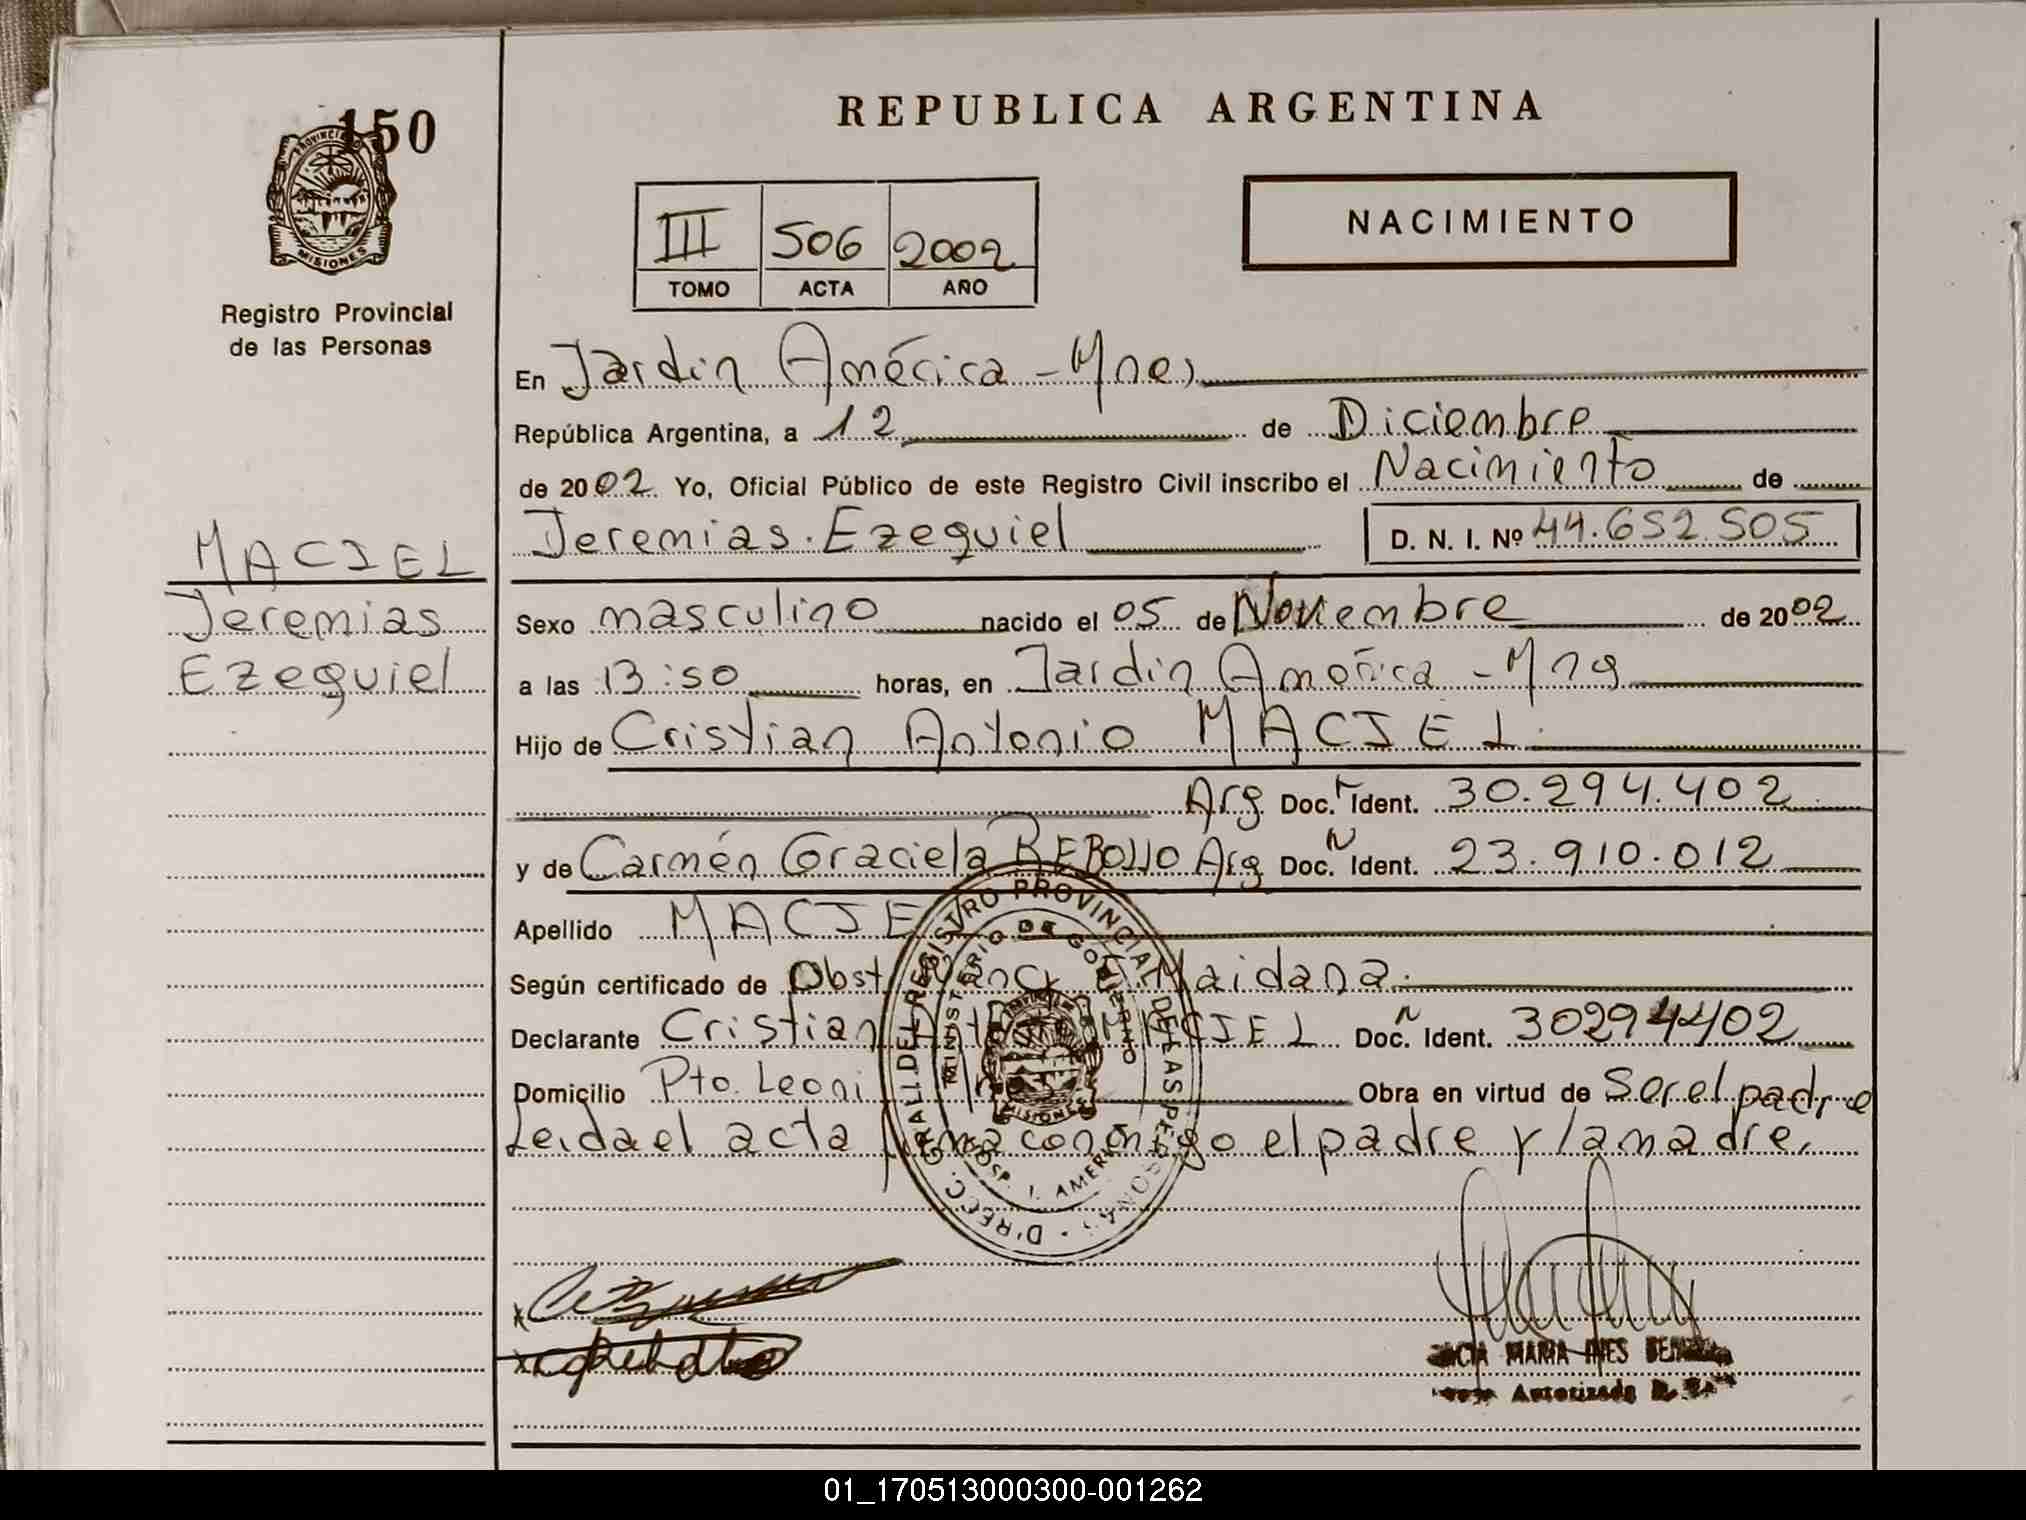 150
PROVINCIA
MISIONES
Registro Provincial
de las Personas
MACIEL
Jeremias
Ezequiel
REPUBLICA ARGENTINA
III 506 2002
TOMO ACTA AÑO
NACIMIENTO
En Jardin América - Mnes
República Argentina, a 12 de Diciembre
de 2002 Yo, Oficial Público de este Registro Civil inscribo el Nacimiento de
Jeremias Ezequiel D. N. I. Nº 44.652.505
Sexo masculino nacido el 05 de Noviembre de 2002
a las 13:50 horas, en Jardin América - Mns
Hijo de Cristian Antonio MACIEL
Arg Doc. Ident. 30.294.402
y de Carmén Graciela REBOLLO Arg Doc. N Ident. 23.910.012
Apellido MACIE
Según certificado de Obst. Maidana
Declarante Cristian MACIEL Doc. N Ident. 30294402
Domicilio Pto. Leoni Obra en virtud de Ser el padre
Leida el acta firma conmigo el padre y la madre.
DIRECC. GRAL DEL REGISTRO PROVINCIAL DE LAS PERSONAS
MINISTERIO DE GOBIERNO
HOSP. J. AMERICA
MISIONES
MARIA INES
Autorizada
01_170513000300-001262